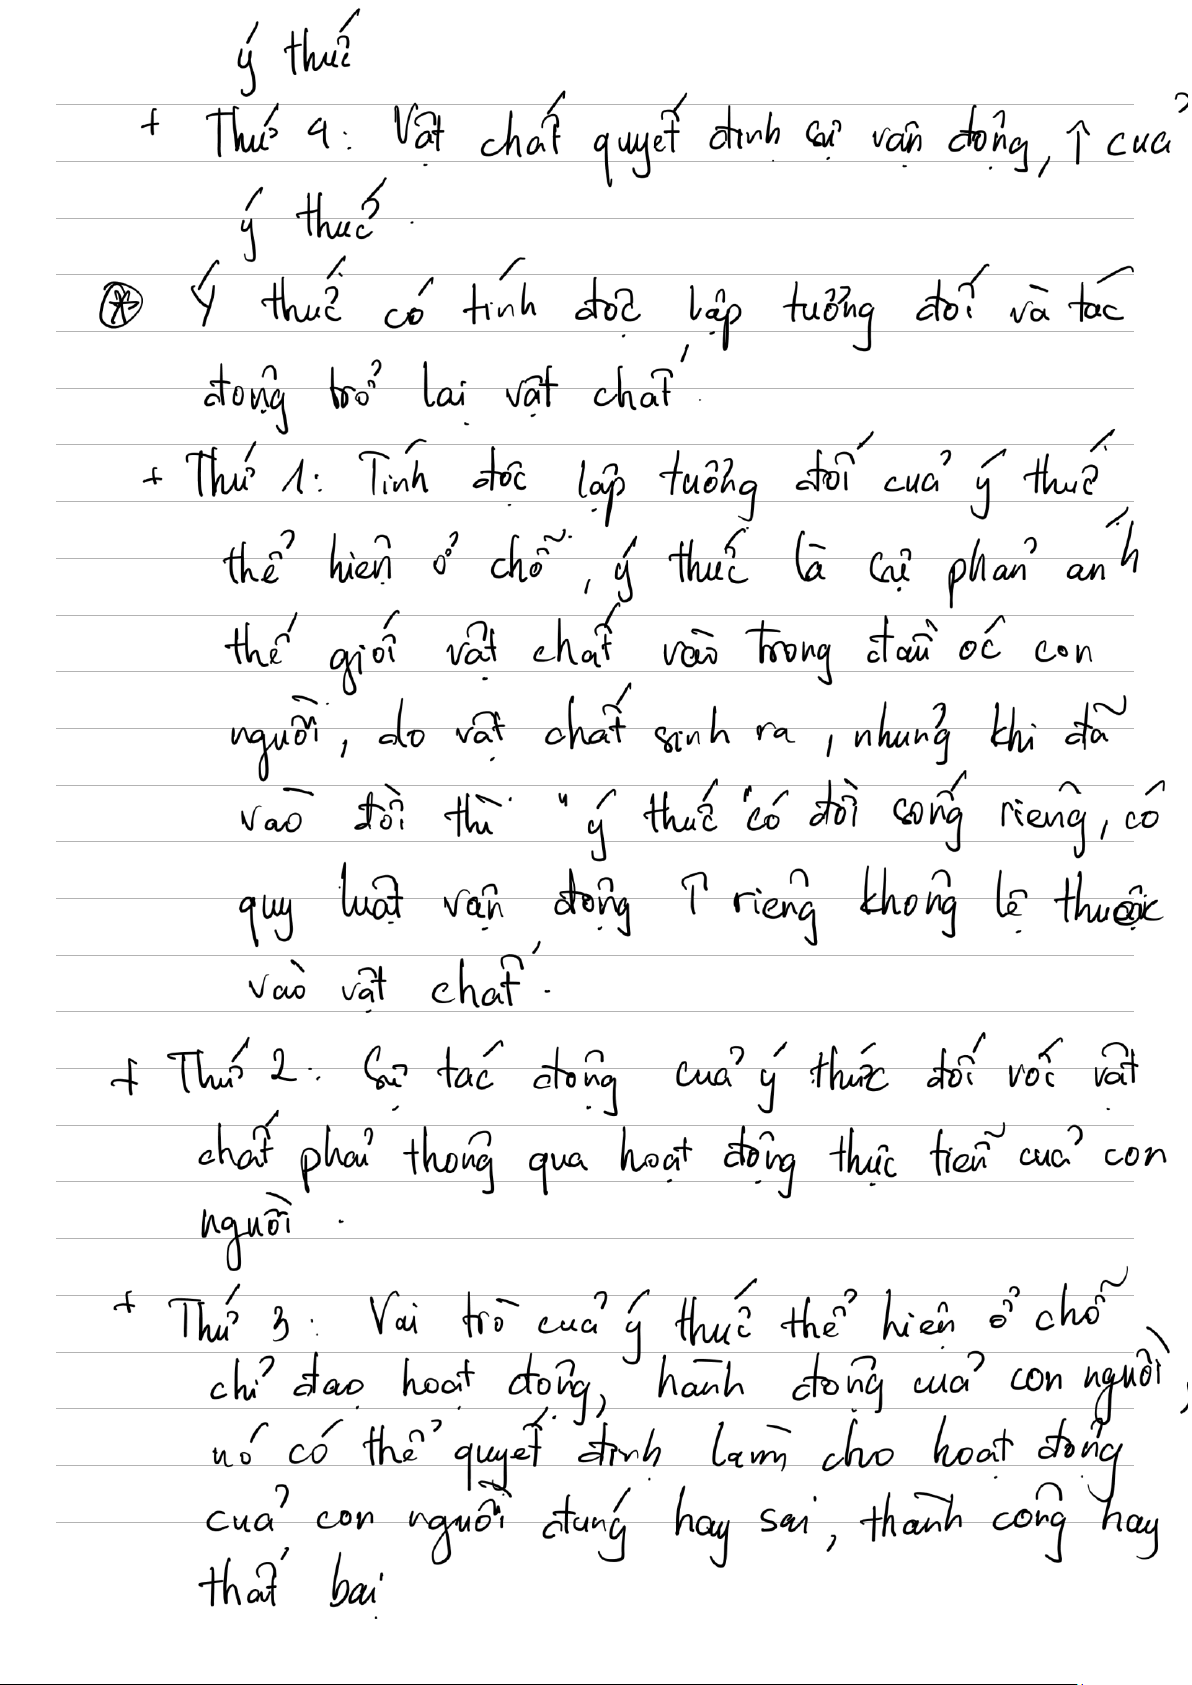 ý thức
+ Thứ 4: Vật chất quyết định sự vận động, ↑ của
ý thức.
⊛ Ý thức có tính độc lập tương đối và tác
động trở lại vật chất.
+ Thứ 1: Tính độc lập tương đối của ý thức
thể hiện ở chỗ, ý thức là sự phản ánh
thế giới vật chất vào trong đầu óc con
người, do vật chất sinh ra, nhưng khi đã
vào đời thì "ý thức" có đời sống riêng, có
quy luật vận động ↑ riêng không lệ thuộc
vào vật chất.
+ Thứ 2: Sự tác động của ý thức đối với vật
chất phải thông qua hoạt động thực tiễn của con
người.
+ Thứ 3: Vai trò của ý thức thể hiện ở chỗ
chỉ đạo hoạt động, hành động của con người,
nó có thể quyết định làm cho hoạt động
của con người đúng hay sai, thành công hay
thất bại